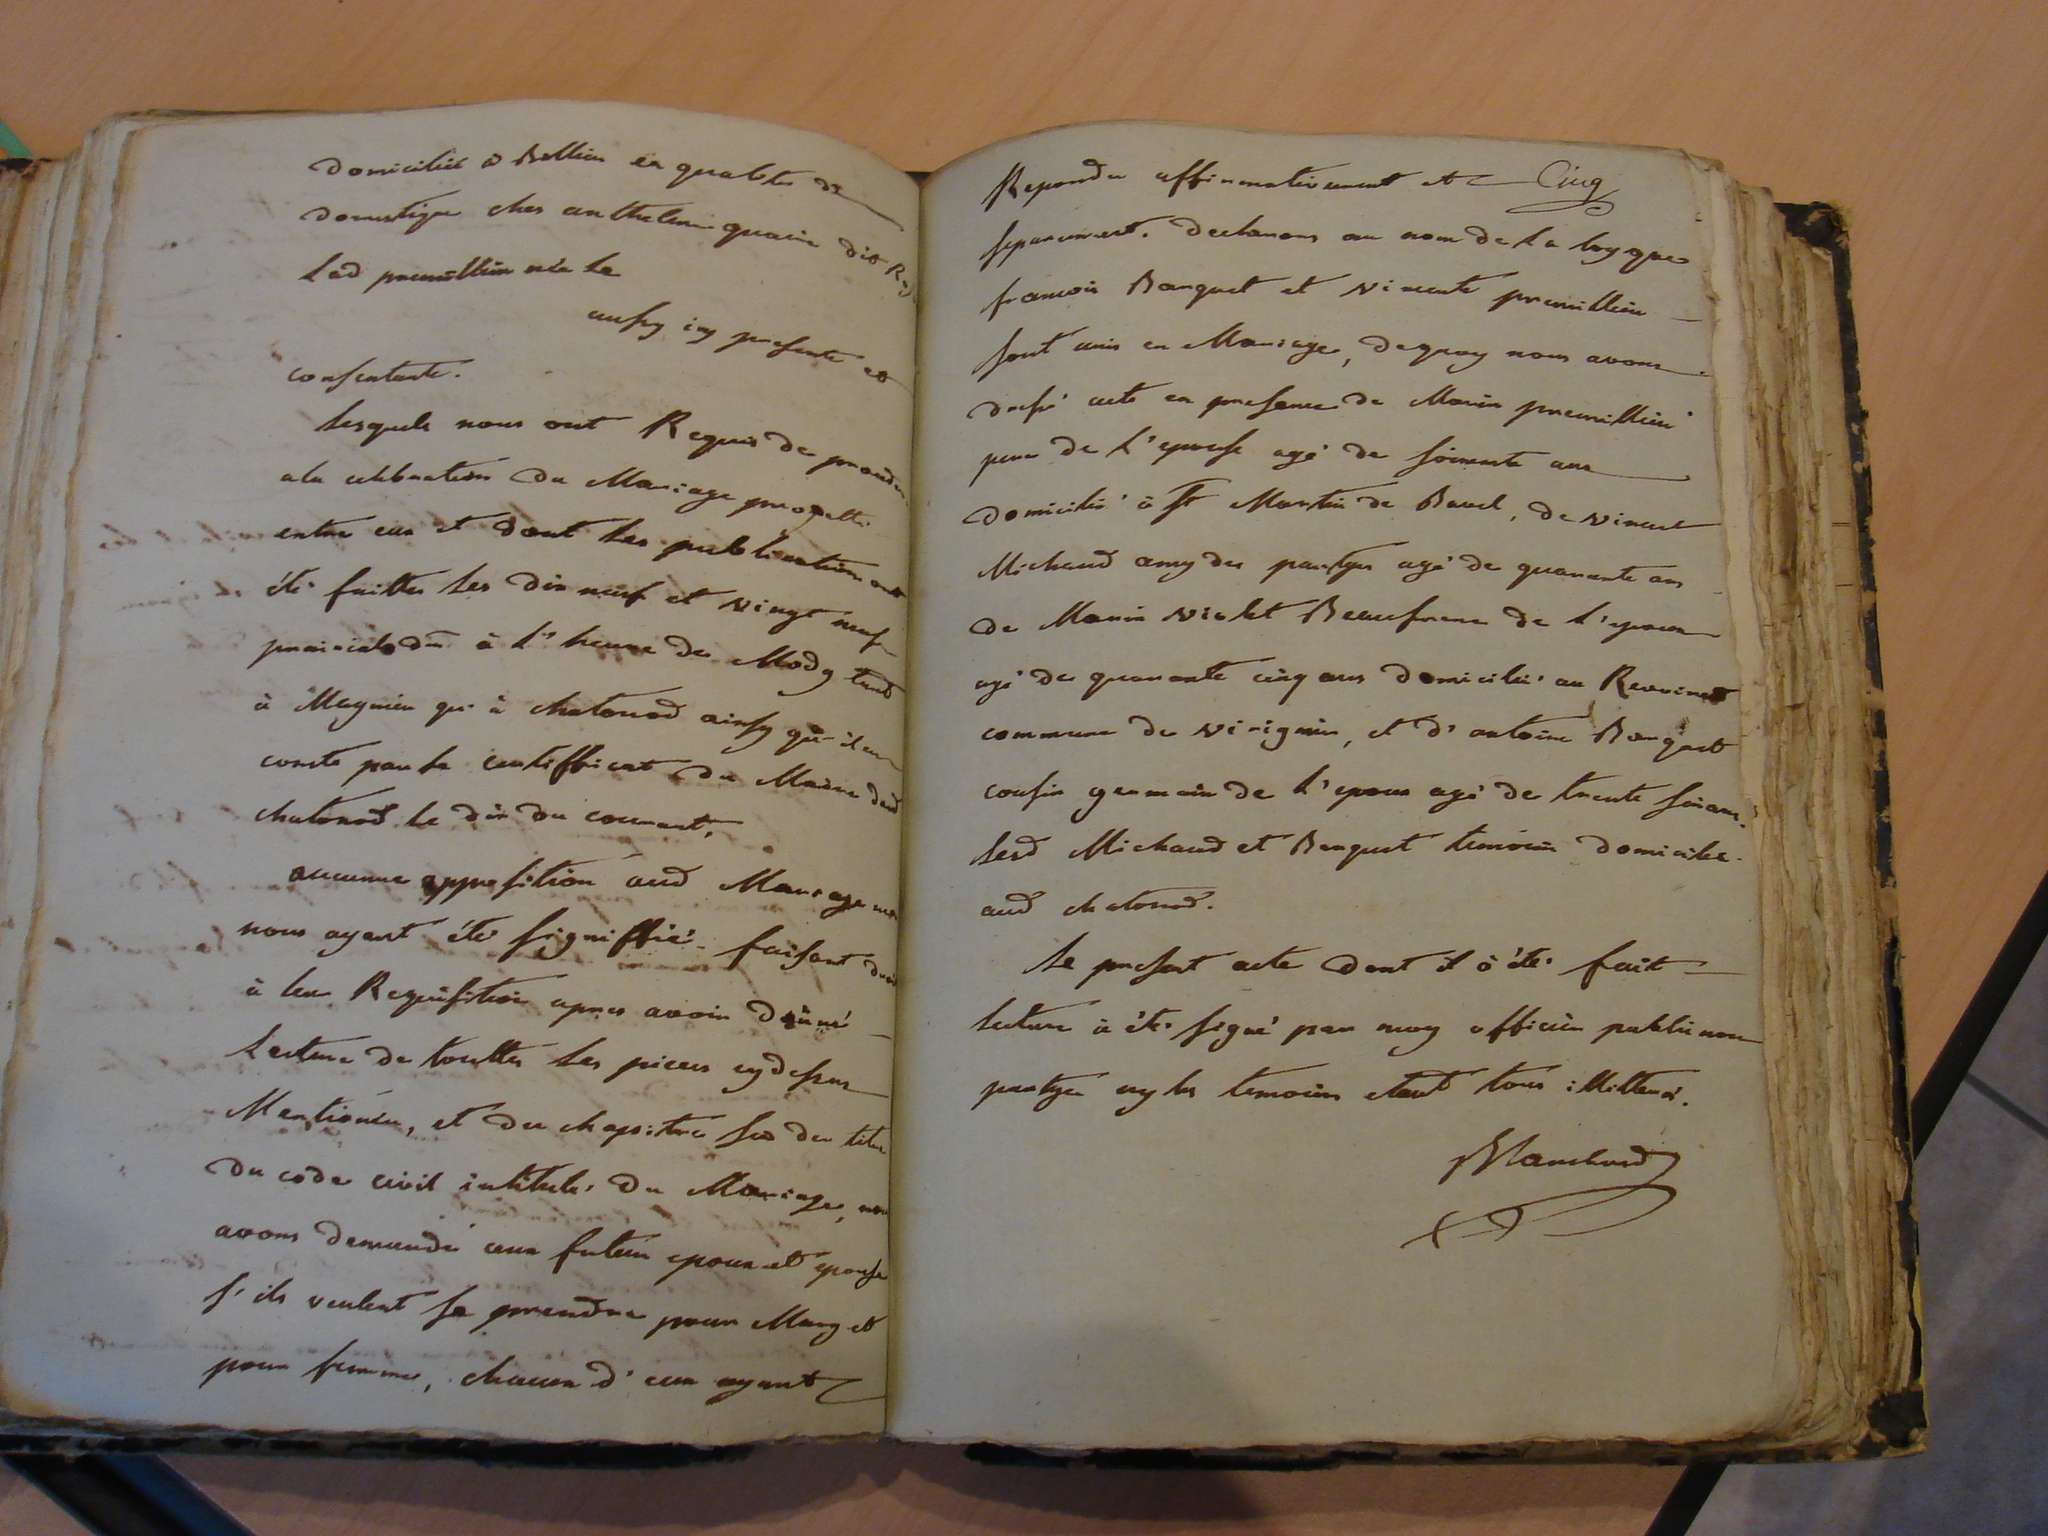 domiciliée à Bellein en qualité de
domestique ches anthelme quain dit
lad premillieu née le
aussy icy presente et
consentante.
lesquels nous ont Requis de proceder
a la celebration du Mariage progetté
entre eux et dont les publications ont
été faittes les dix neuf et vingt neuf
prairial dr à l'heure de Mody tant
à Magnieu qu'à chatonod ainsy qu'il en
conste par le certifficat du Maire dud
chatonod le dix du courant,
aucunne opposition aud Mariage ne
nous ayant été signiffiée faisant droit
à leur Requisition apres avoir donné
Lecture de touttes les pieces cydessus
Mentionées, et du chapitre six du titre
du code civil intitulé du Mariage, nous
avons demandé aux futeur epoux et epouse
s'ils veulent se prendre pour Mary et
pour femme, chacun d'eux ayant
Repondu affirmativement et Cinq
separement. declarons au nom de la loy que
francois Banquet et vincente premillieu
sont unis en Mariage, dequoy nous avons
dressé acte en presence de Marin premillieu
pere de l'epouse agé de soixante ans
domicilié à St Martin de Bavel, de vincent
Michaud amy des partyes agé de quarante ans
de Marin violet Beaufrere de l'epoux
agé de quarante cinq ans domicilié au
commune de virignin, et d'antoine Banquet
cousin germain de l'epoux agé de trente six ans.
lesd Michaud et Banquet temoins domicilié
aud chatonod.
Le present acte dont il à été fait
lecture à été signé par moy officier public non
partyes ny les temoins etant tous illitteré.
Blanchard